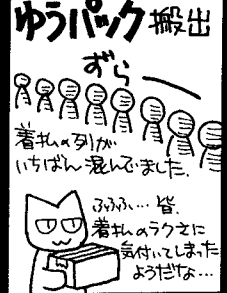 ゆうパック搬出
ずらー
着払の列が
いちばん混んでいました.
ふふふ…皆、
着払のラクさに
気付いてしまった
ようだな…